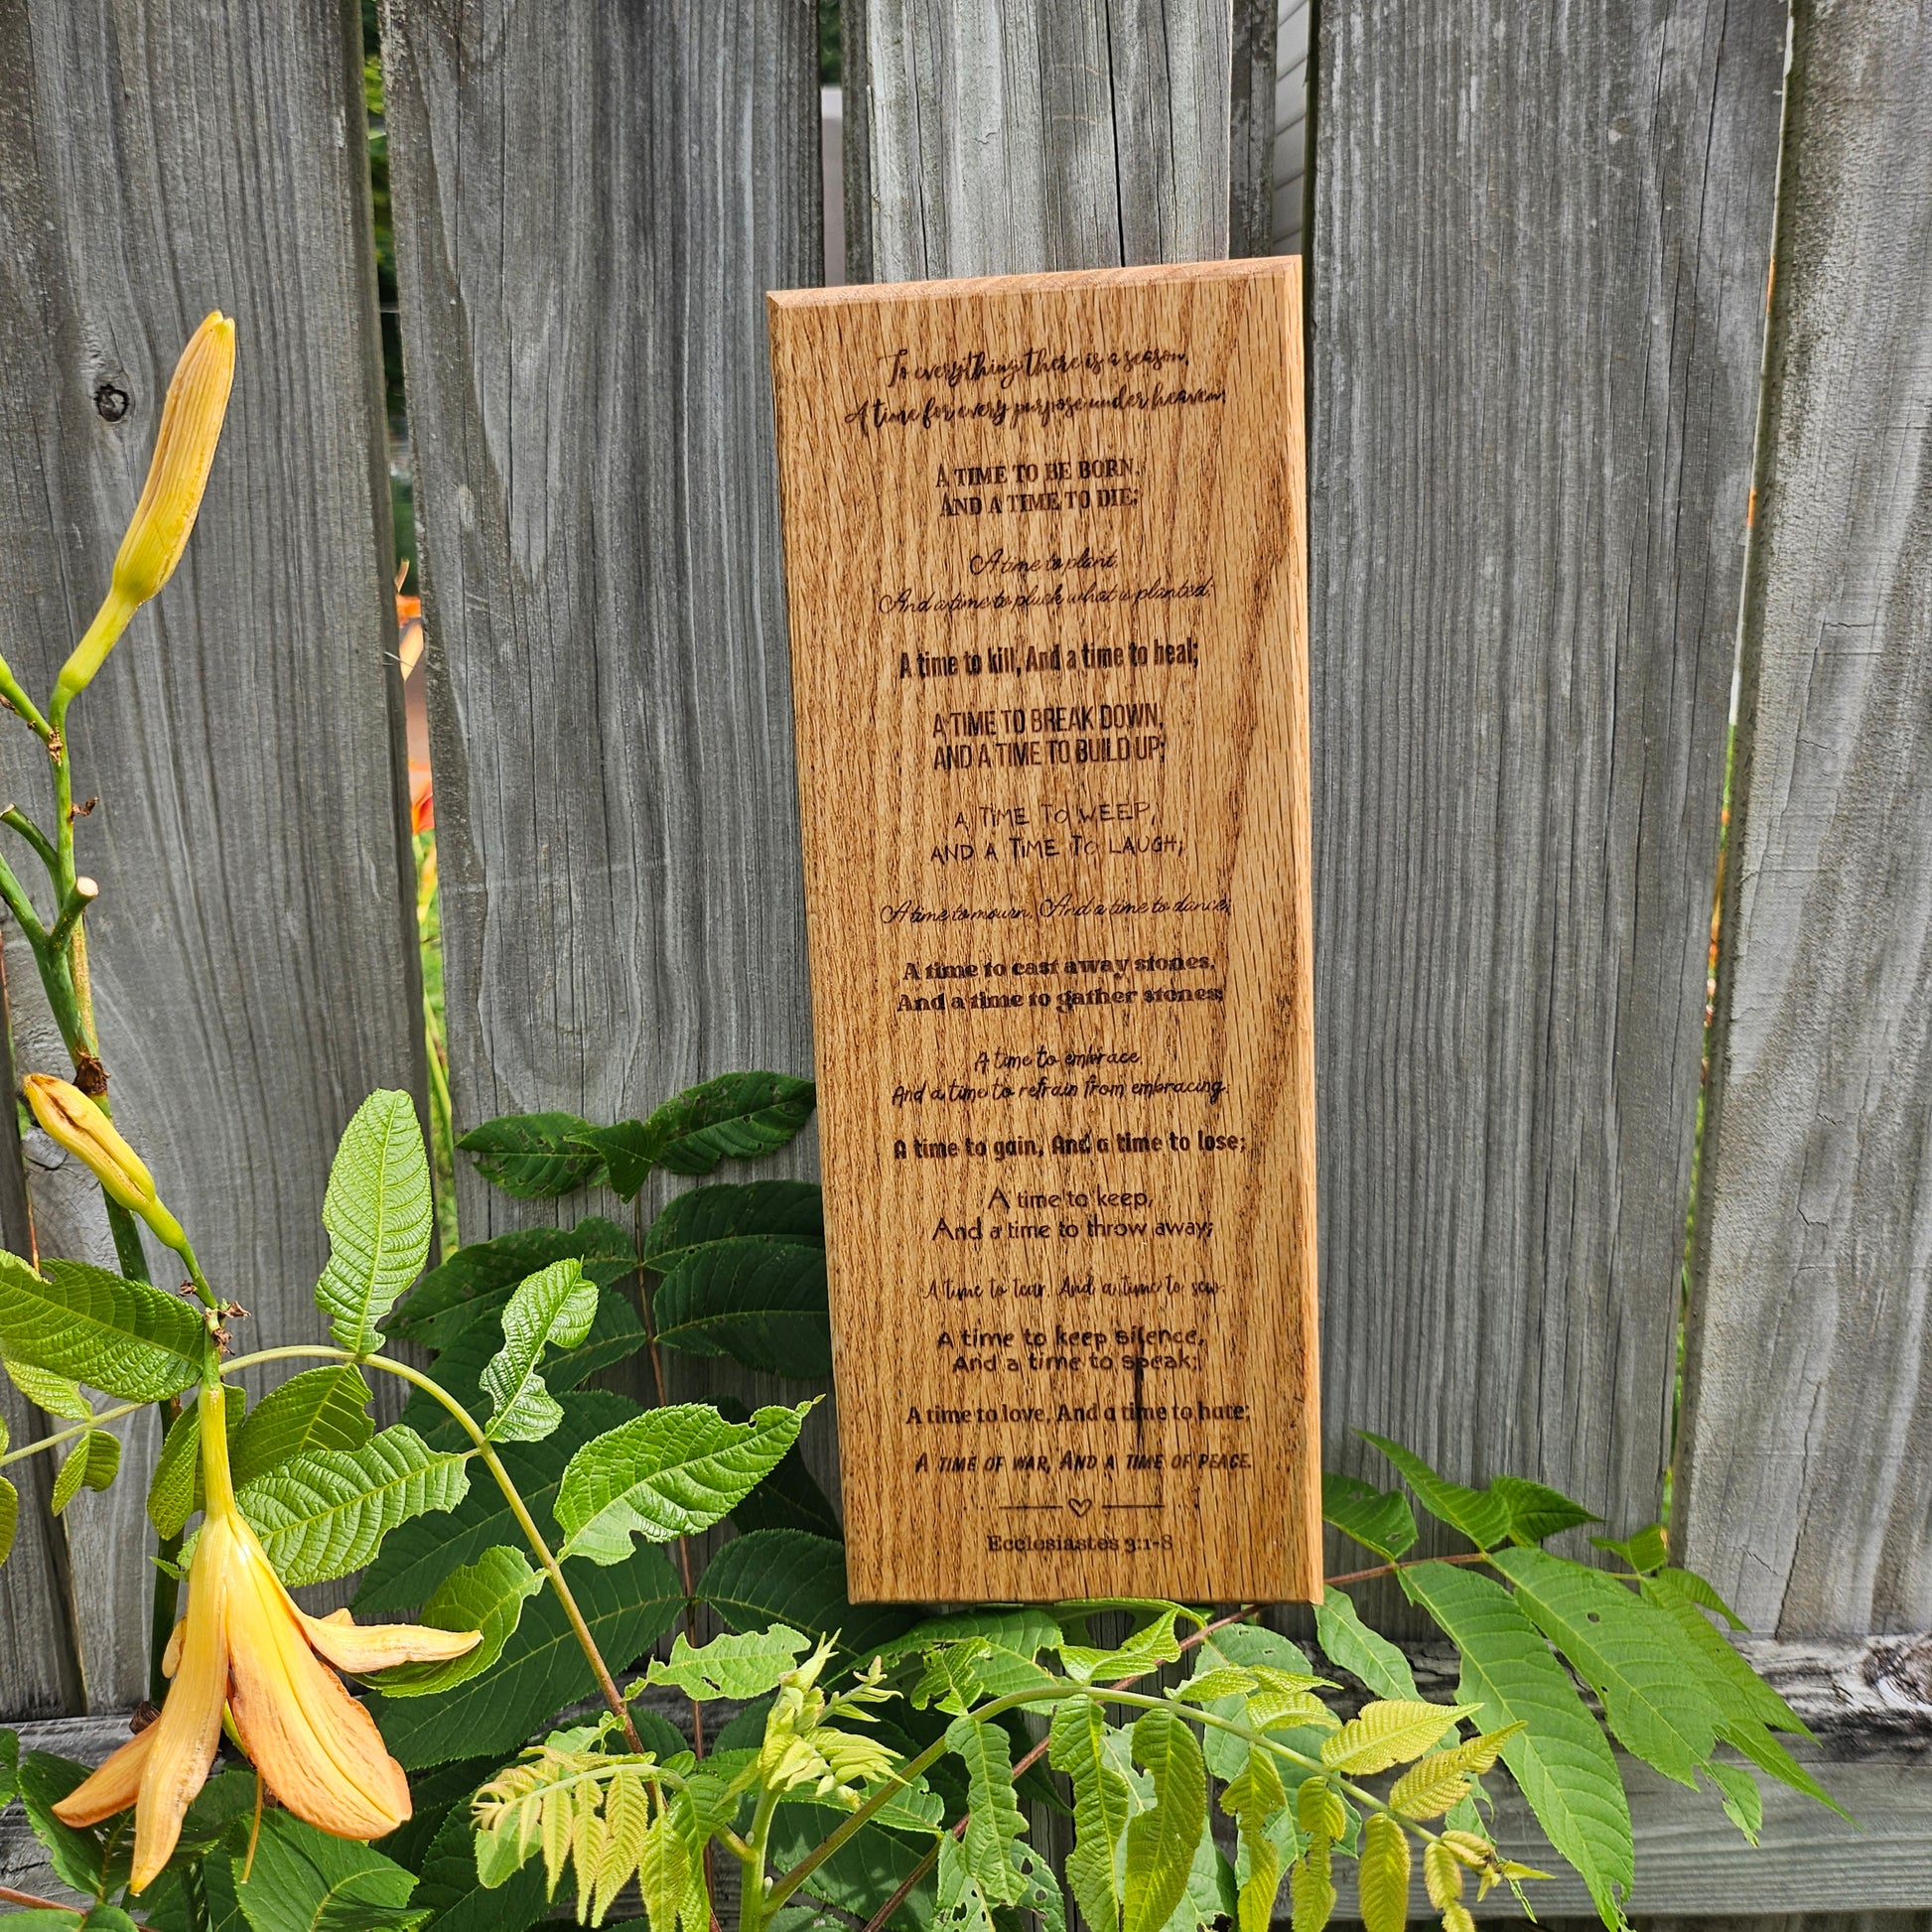 To everything there is a season,
A time for every purpose under heaven:
A TIME TO BE BORN,
AND A TIME TO DIE;
A time to plant,
And a time to pluck what is planted;
A time to kill, And a time to heal;
A TIME TO BREAK DOWN,
AND A TIME TO BUILD UP;
A TIME TO WEEP,
AND A TIME TO LAUGH;
A time to mourn, And a time to dance;
A time to cast away stones,
And a time to gather stones;
A time to embrace,
And a time to refrain from embracing;
A time to gain, And a time to lose;
A time to keep,
And a time to throw away;
A time to tear, And a time to sew;
A time to keep silence,
And a time to speak;
A time to love, And a time to hate;
A TIME OF WAR, AND A TIME OF PEACE.
Ecclesiastes 3:1-8